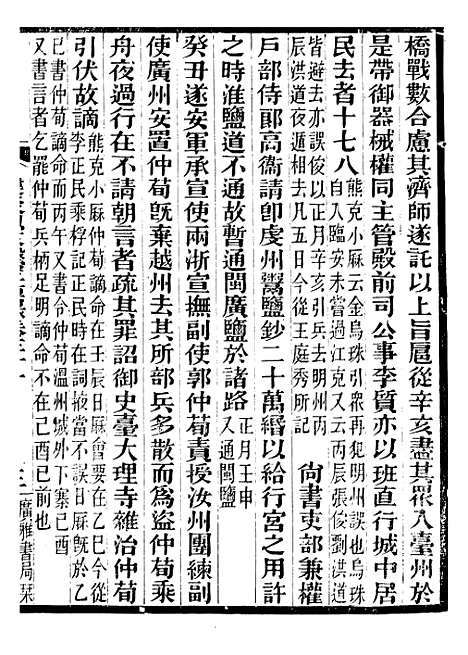 橋戰數合慮其濟師遂託以上旨扈從辛亥盡其眾入臺州於
是帶御器械權同主管殿前司公事李質亦以班直行城中居
民去者十七八熊克小厤云金烏珠引眾再犯明州也烏珠
自入臨安未嘗過江克又云丙辰張俊劉洪道
皆避去亦誤俊以正月辛亥引兵去明州丙
辰洪道夜遁相去凡五日今從王庭秀所記尚書吏部兼權
戶部侍郎高衞請卽虔州鬻鹽鈔二十萬緡以給行宮之用許
之時淮鹽道不通故暫通閩廣鹽於諸路正月壬申
又通閩鹽
癸丑遂安軍承宣使兩浙宣撫副使郭仲荀責授汝州團練副
使廣州安置仲荀旣棄越州去其所部兵多散而為盜仲荀乘
舟夜過行在不請朝言者疏其罪詔御史臺大理寺雜治仲荀
引伏故謫熊克小厤仲荀謫命在壬辰日厤會要在乙巳今從
李正民乘桴記正民時在詞掖當不誤日厤旣於乙
巳書仲荀謫命而丙午又書令仲荀溫州城外下寨己酉
又書言者乞罷仲荀兵柄足明謫命不在己酉已前也
廣雅書局栞